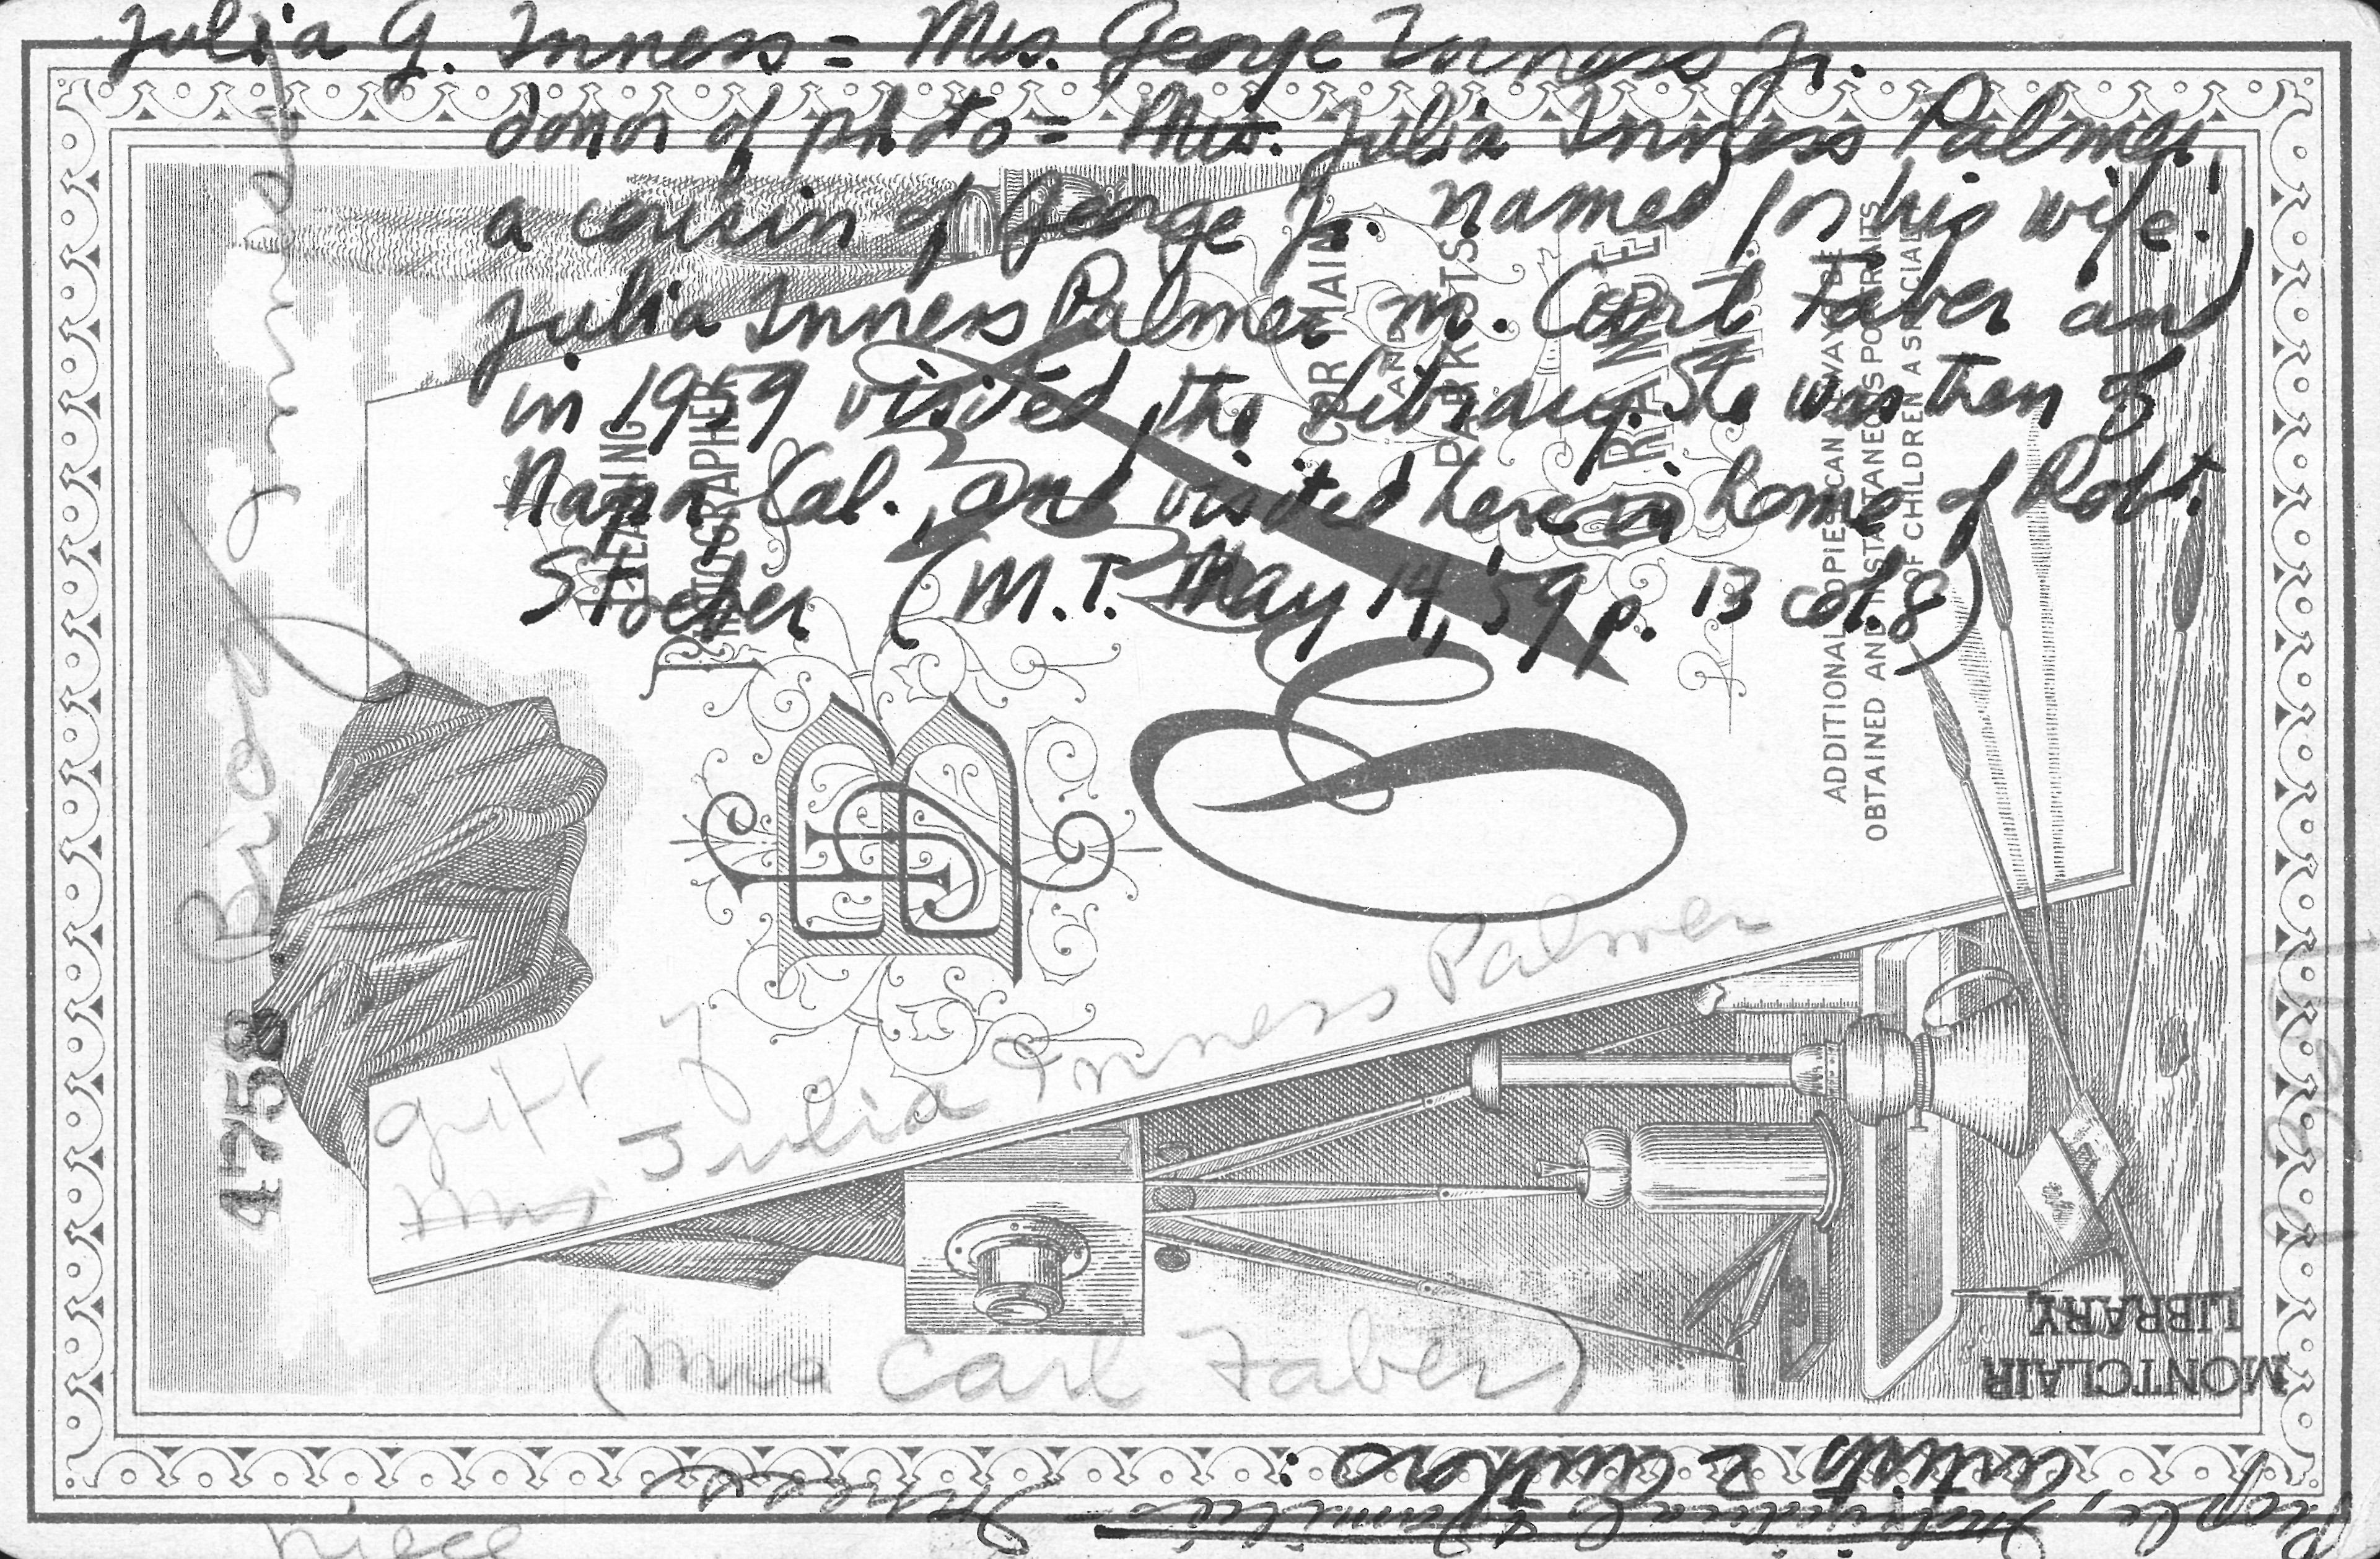 Julia G. Inness = Mrs. George Inness Jr.
donor of photo = Mrs. Julia Inness Palmer
a cousin of George Jr. named for his wife.)
Julia Inness Palmer m. Carl Faber and
in 1959 visited the library. She was then of
Napa, Cal., and visited here in home of Robt.
Stoeber (M.T. May 14, '59 p. 13 col. 8)
Biog Inness
4758
LEADING
PHOTOGRAPHER
COR MAIN
AND
DAY BE
OBTAINED AND INSTANTANEOUS PORTRAITS
OF CHILDREN A SPECIALTY
gift of
Mrs Julia Inness Palmer
(Mrs Carl Faber)
MONTCLAIR
LIBRARY,
People, Individuals & Families - Inness
artists & authors:
niece